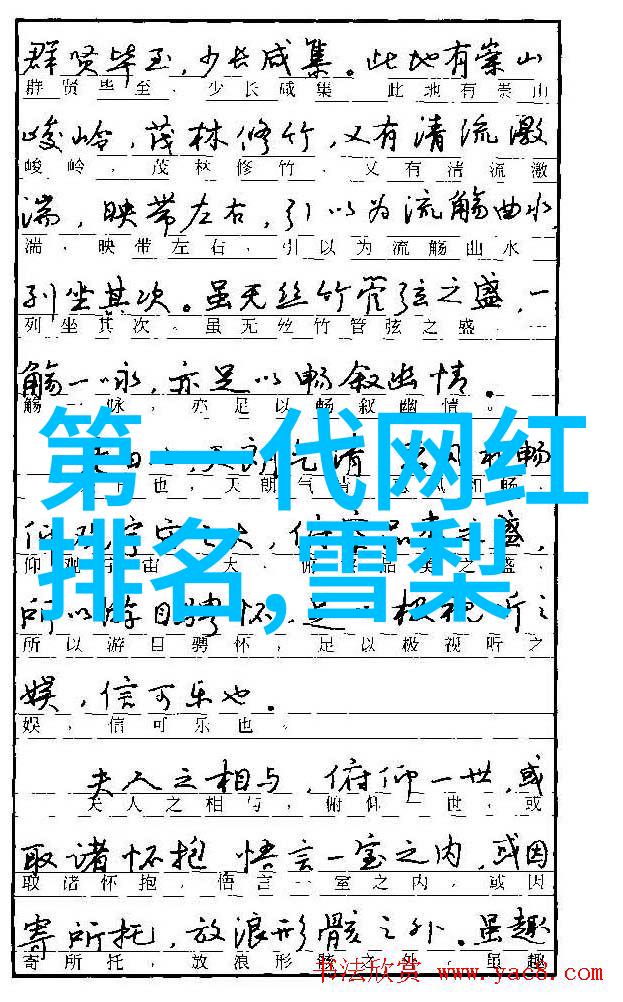 群贤毕至，少长咸集。此地有崇山
群贤毕至，少长咸集。此地有崇山
峻岭，茂林修竹，又有清流激
峻岭，茂林修竹，又有清流激
湍，映带左右，引以为流觞曲水，
湍，映带左右，引以为流觞曲水，
列坐其次。虽无丝竹管弦之盛，一
列坐其次。虽无丝竹管弦之盛，一
觞一咏，亦足以畅叙幽情。
觞一咏，亦足以畅叙幽情。
第一代网红
天朗气清 和畅
也，天朗气 风和畅，
排名,雪梨
仰观宇宙之大，俯 品类之盛，
仰观宇宙 大，俯 品类之盛，
所以游目骋怀，足 极视听之
所以游目骋怀，足以极视听之
娱，信可乐也。
娱，信可乐也。
夫人之相与，俯仰一世，或
夫人之相与，俯仰一世，或
取诸怀抱 悟言一室之内，或因
取诸怀抱，悟言一室之内，或因
寄所托，放浪形骸之外。虽趣
寄所托，放浪形骸之外。虽趣
书法欣赏 www.yac8.com